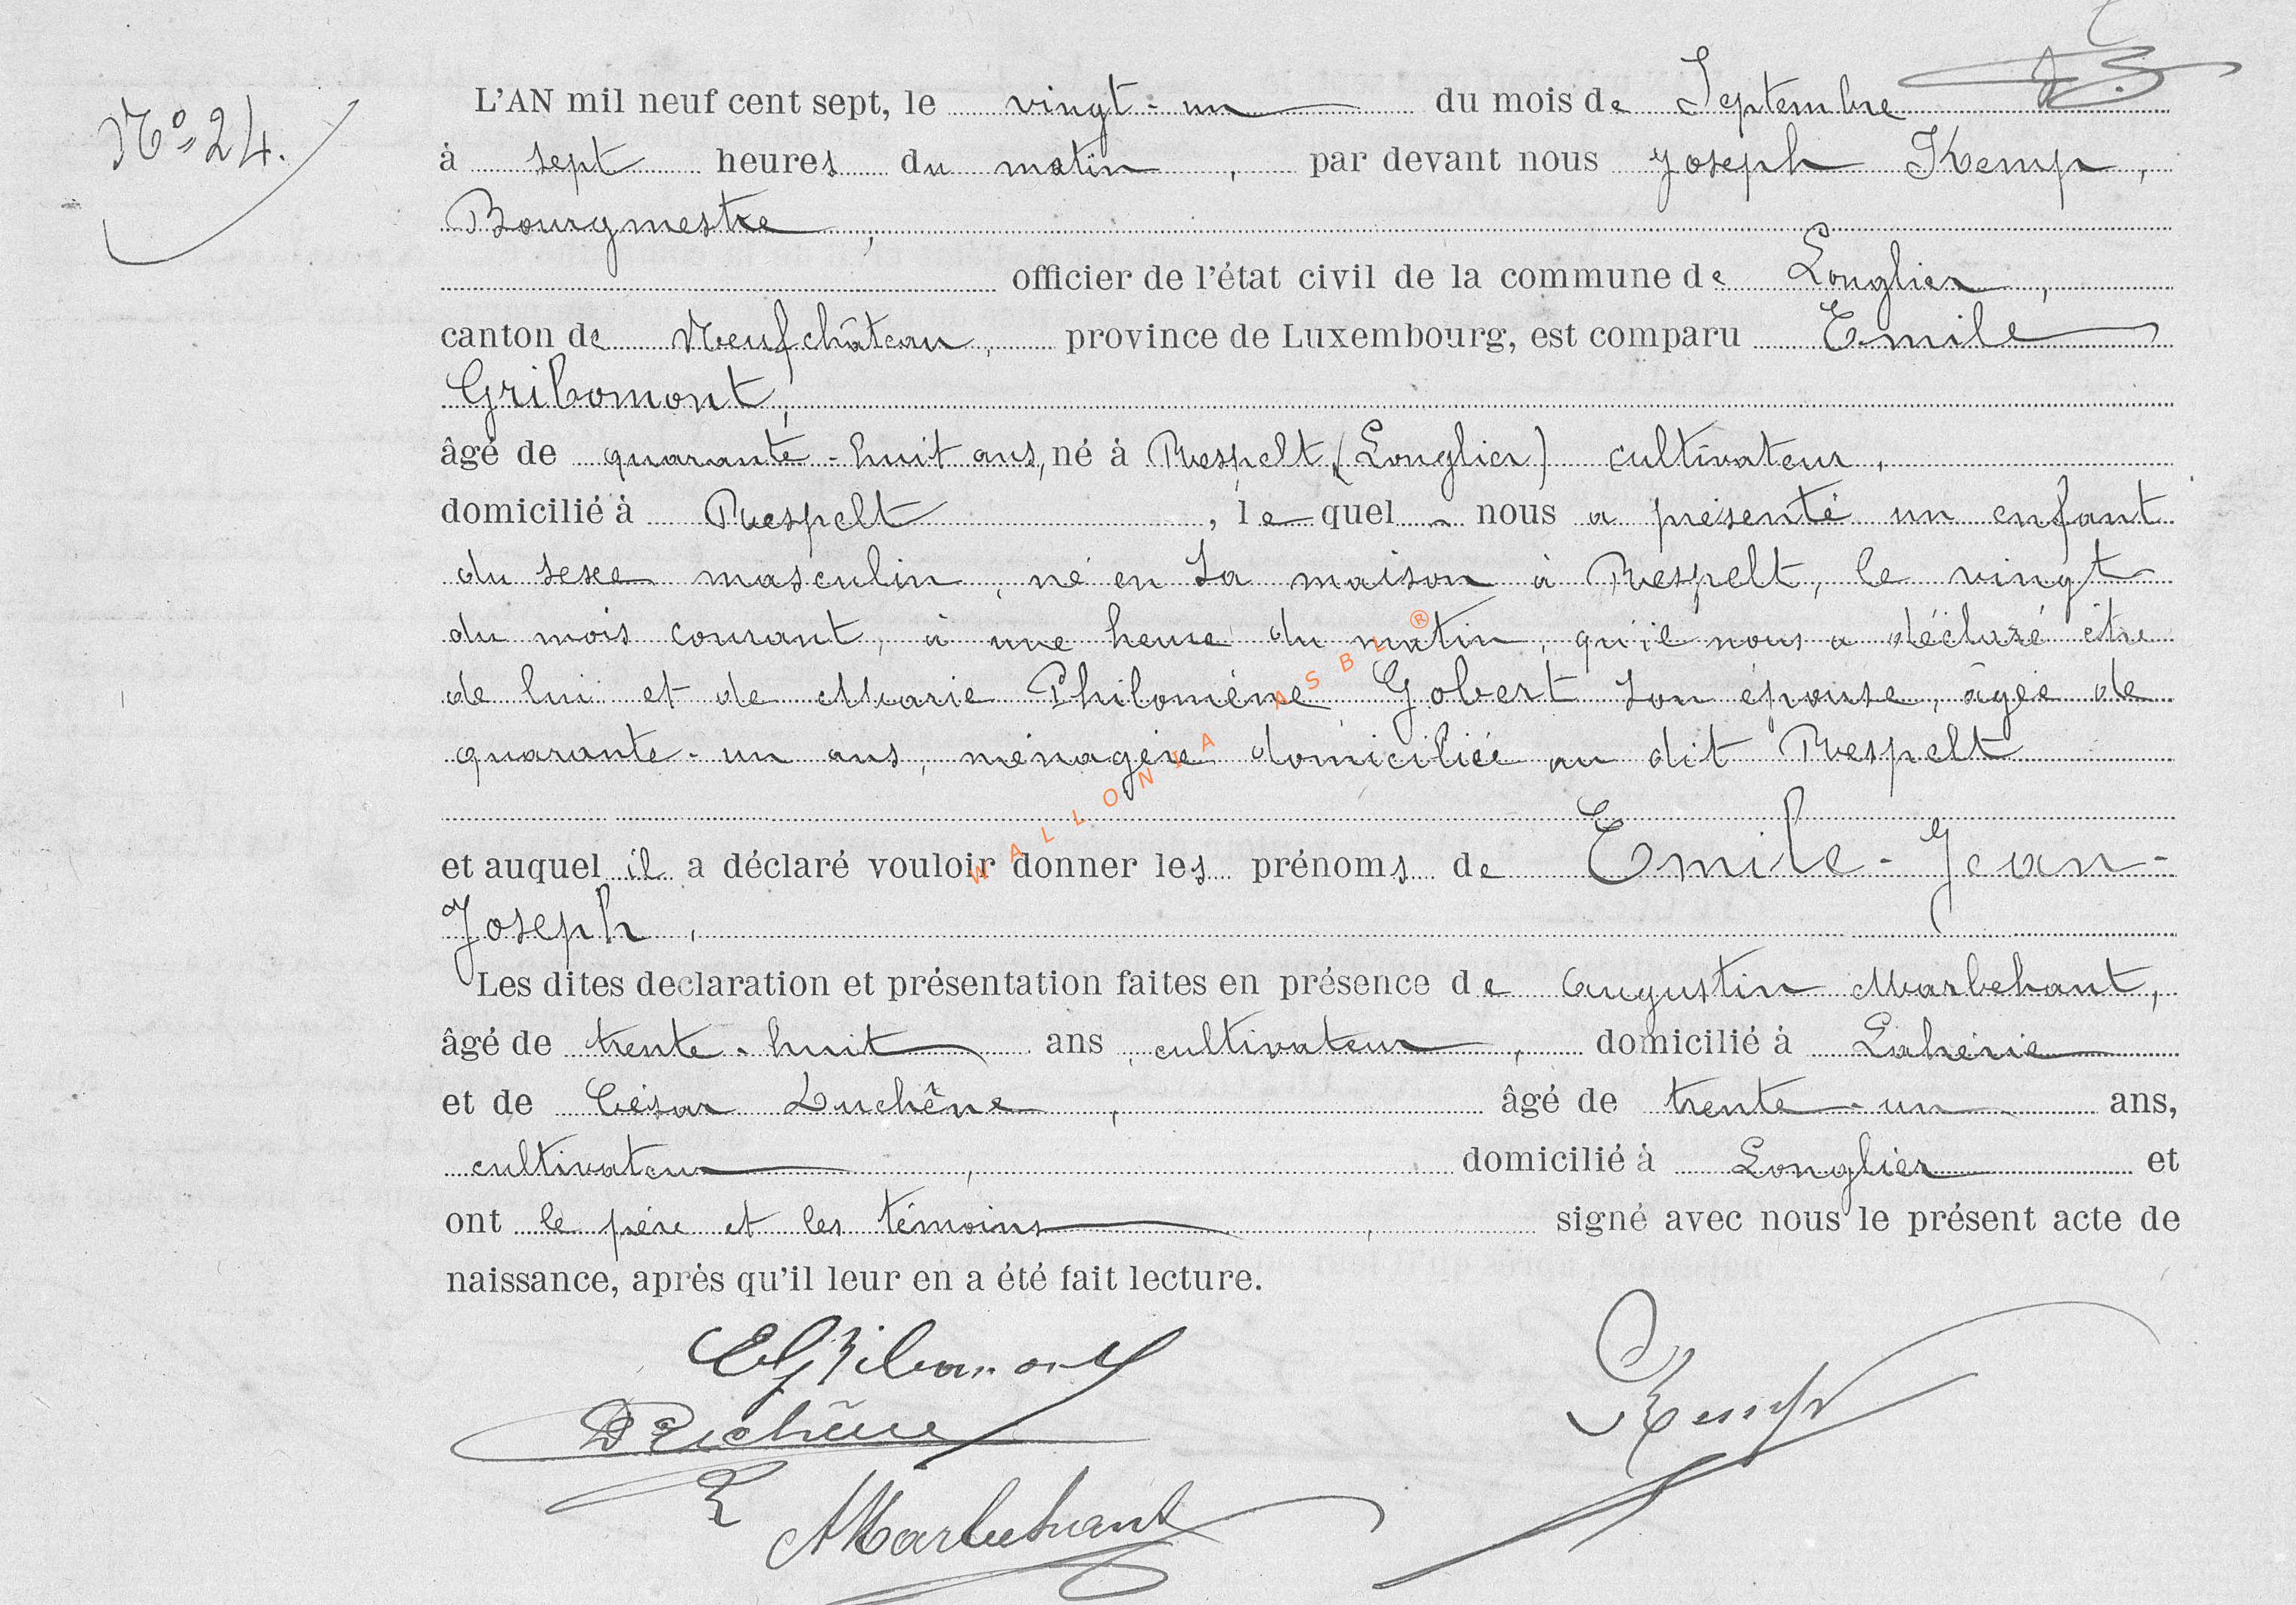 N° 24.
L'AN mil neuf cent sept, le vingt-un du mois de Septembre
à sept heures du matin, par devant nous Joseph Kemp,
Bourgmestre,
officier de l'état civil de la commune de Longlier,
canton de Neufchâteau, province de Luxembourg, est comparu Emile
Gribomont,
âgé de quarante-huit ans, né à Respelt, (Longlier) cultivateur,
domicilié à Respelt, lequel nous a présenté un enfant
du sexe masculin, né en sa maison à Respelt, le vingt
du mois courant, à une heure du matin, qu'il nous a déclaré être
de lui et de Marie Philomène Gobert son épouse, âgée de
quarante-un ans, ménagère domiciliée au dit Respelt
et auquel il a déclaré vouloir donner les prénoms de Emile-Jean-
Joseph.
Les dites declaration et présentation faites en présence de Augustin Marbehant,
âgé de trente-huit ans, cultivateur, domicilié à Lahérie
et de César Duchêne, âgé de trente-un ans,
cultivateur, domicilié à Longlier et
ont le père et les témoins, signé avec nous le présent acte de
naissance, après qu'il leur en a été fait lecture.
EGribomont
Duchêne
Kemp
AMarbehant
WALLONIA ASBL ®